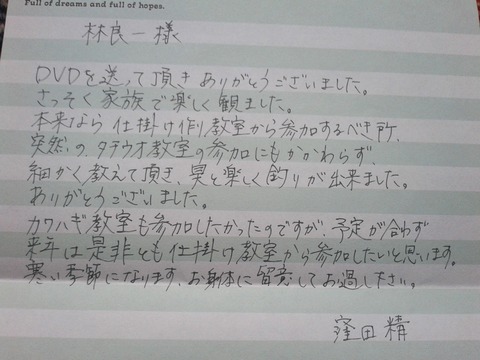 Full of dreams and full of hopes.
林良一様
DVDを送って頂きありがとうございました。
さっそく家族で楽しく観ました。
本来なら仕掛け作り教室から参加するべき所、
突然の、タチウオ教室の参加にもかかわらず、
細かく教えて頂き、異と楽しく釣りが出来ました。
ありがとうございました。
カワハギ教室も参加したかったのですが、予定が合わず
来年は是非とも仕掛け教室から参加したいと思います。
寒い季節になります、お身体に留意してお過し下さい。
窪田 精